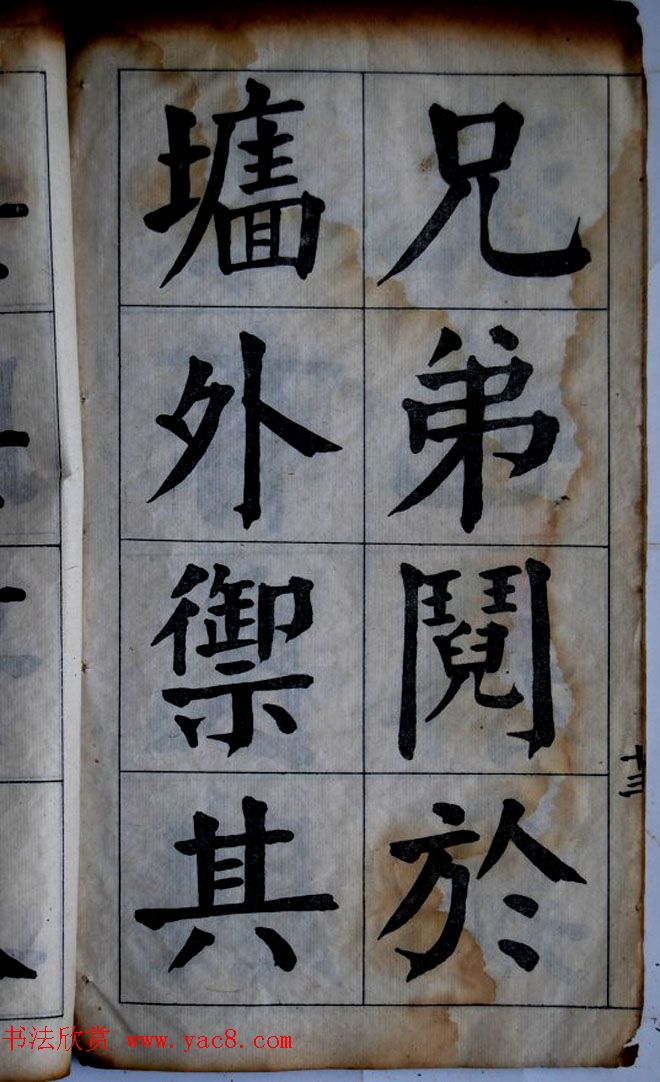 兄弟鬩於
墻外禦其
十三
书法欣赏 www.yac8.com